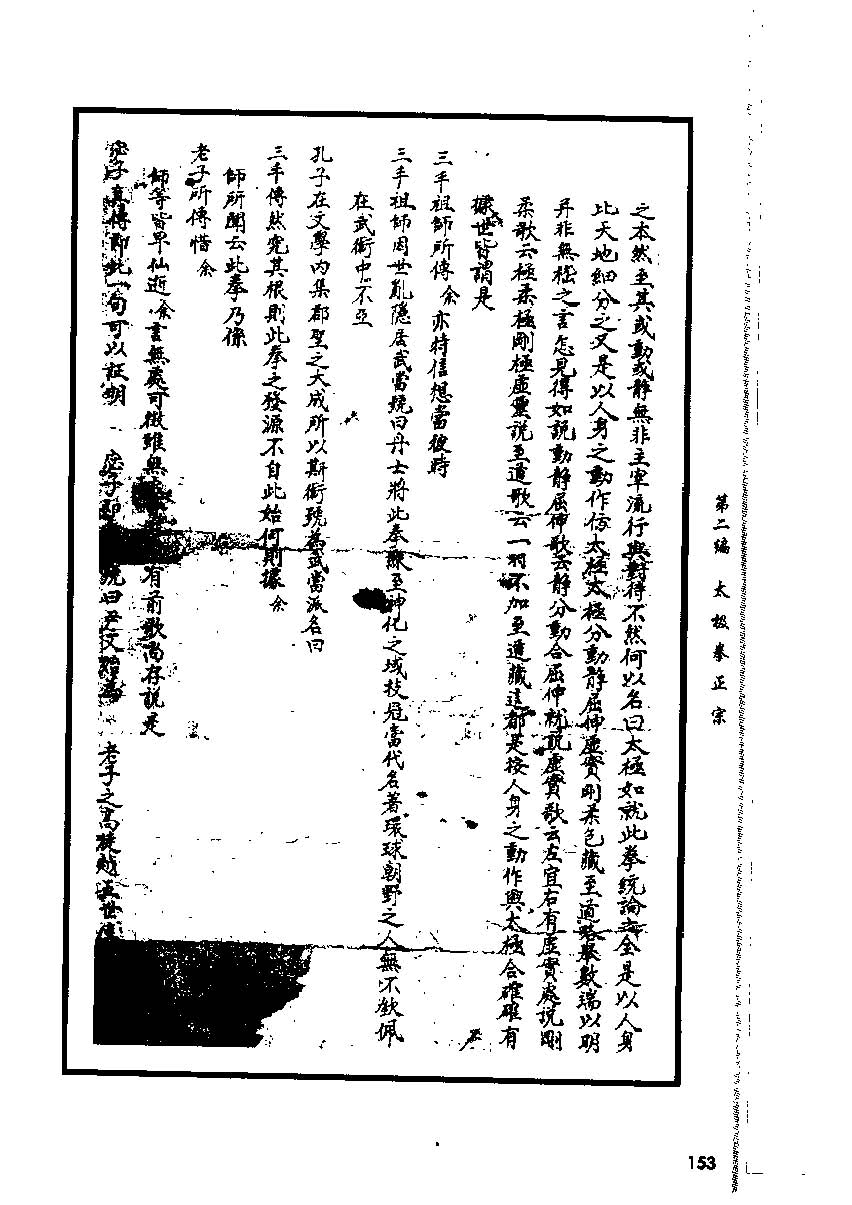 之本然至其或動或靜無非主宰流行與對待不然何以名曰太極如就此拳統論之全是以人身
此天地細分之又是以人身之動作仿太極太極分動靜屈伸虛實剛柔包藏至道略舉數端以明
幷非無極之言怎見得如說動靜屈伸歌云靜分動合屈伸就說虛實歌云左宜右有虛實處說剛
柔歌云極柔極剛極虛靈說至道歌云一羽不加至道藏這都是按人身之動作與太極合確確有
據世皆謂是
三丰祖師所傳余亦特信想當彼時
三丰祖師因世亂隱居武當號曰丹士將此拳鍊至神化之域技冠當代名著環球朝野之人無不欽佩
在武術中不亞
孔子在文學內集群聖之大成所以斯術號為武當派名曰
三丰傳然究其根則此拳之發源不自此始何則據余
師所聞云此拳乃係
老子所傳惜余
師等皆早仙逝余言無處可徵雖無 有前歌尚存說是
宓子真傳即此一句可以証明 宓子即 號曰尹文 老子之高徒
第二編 太极拳正宗
153